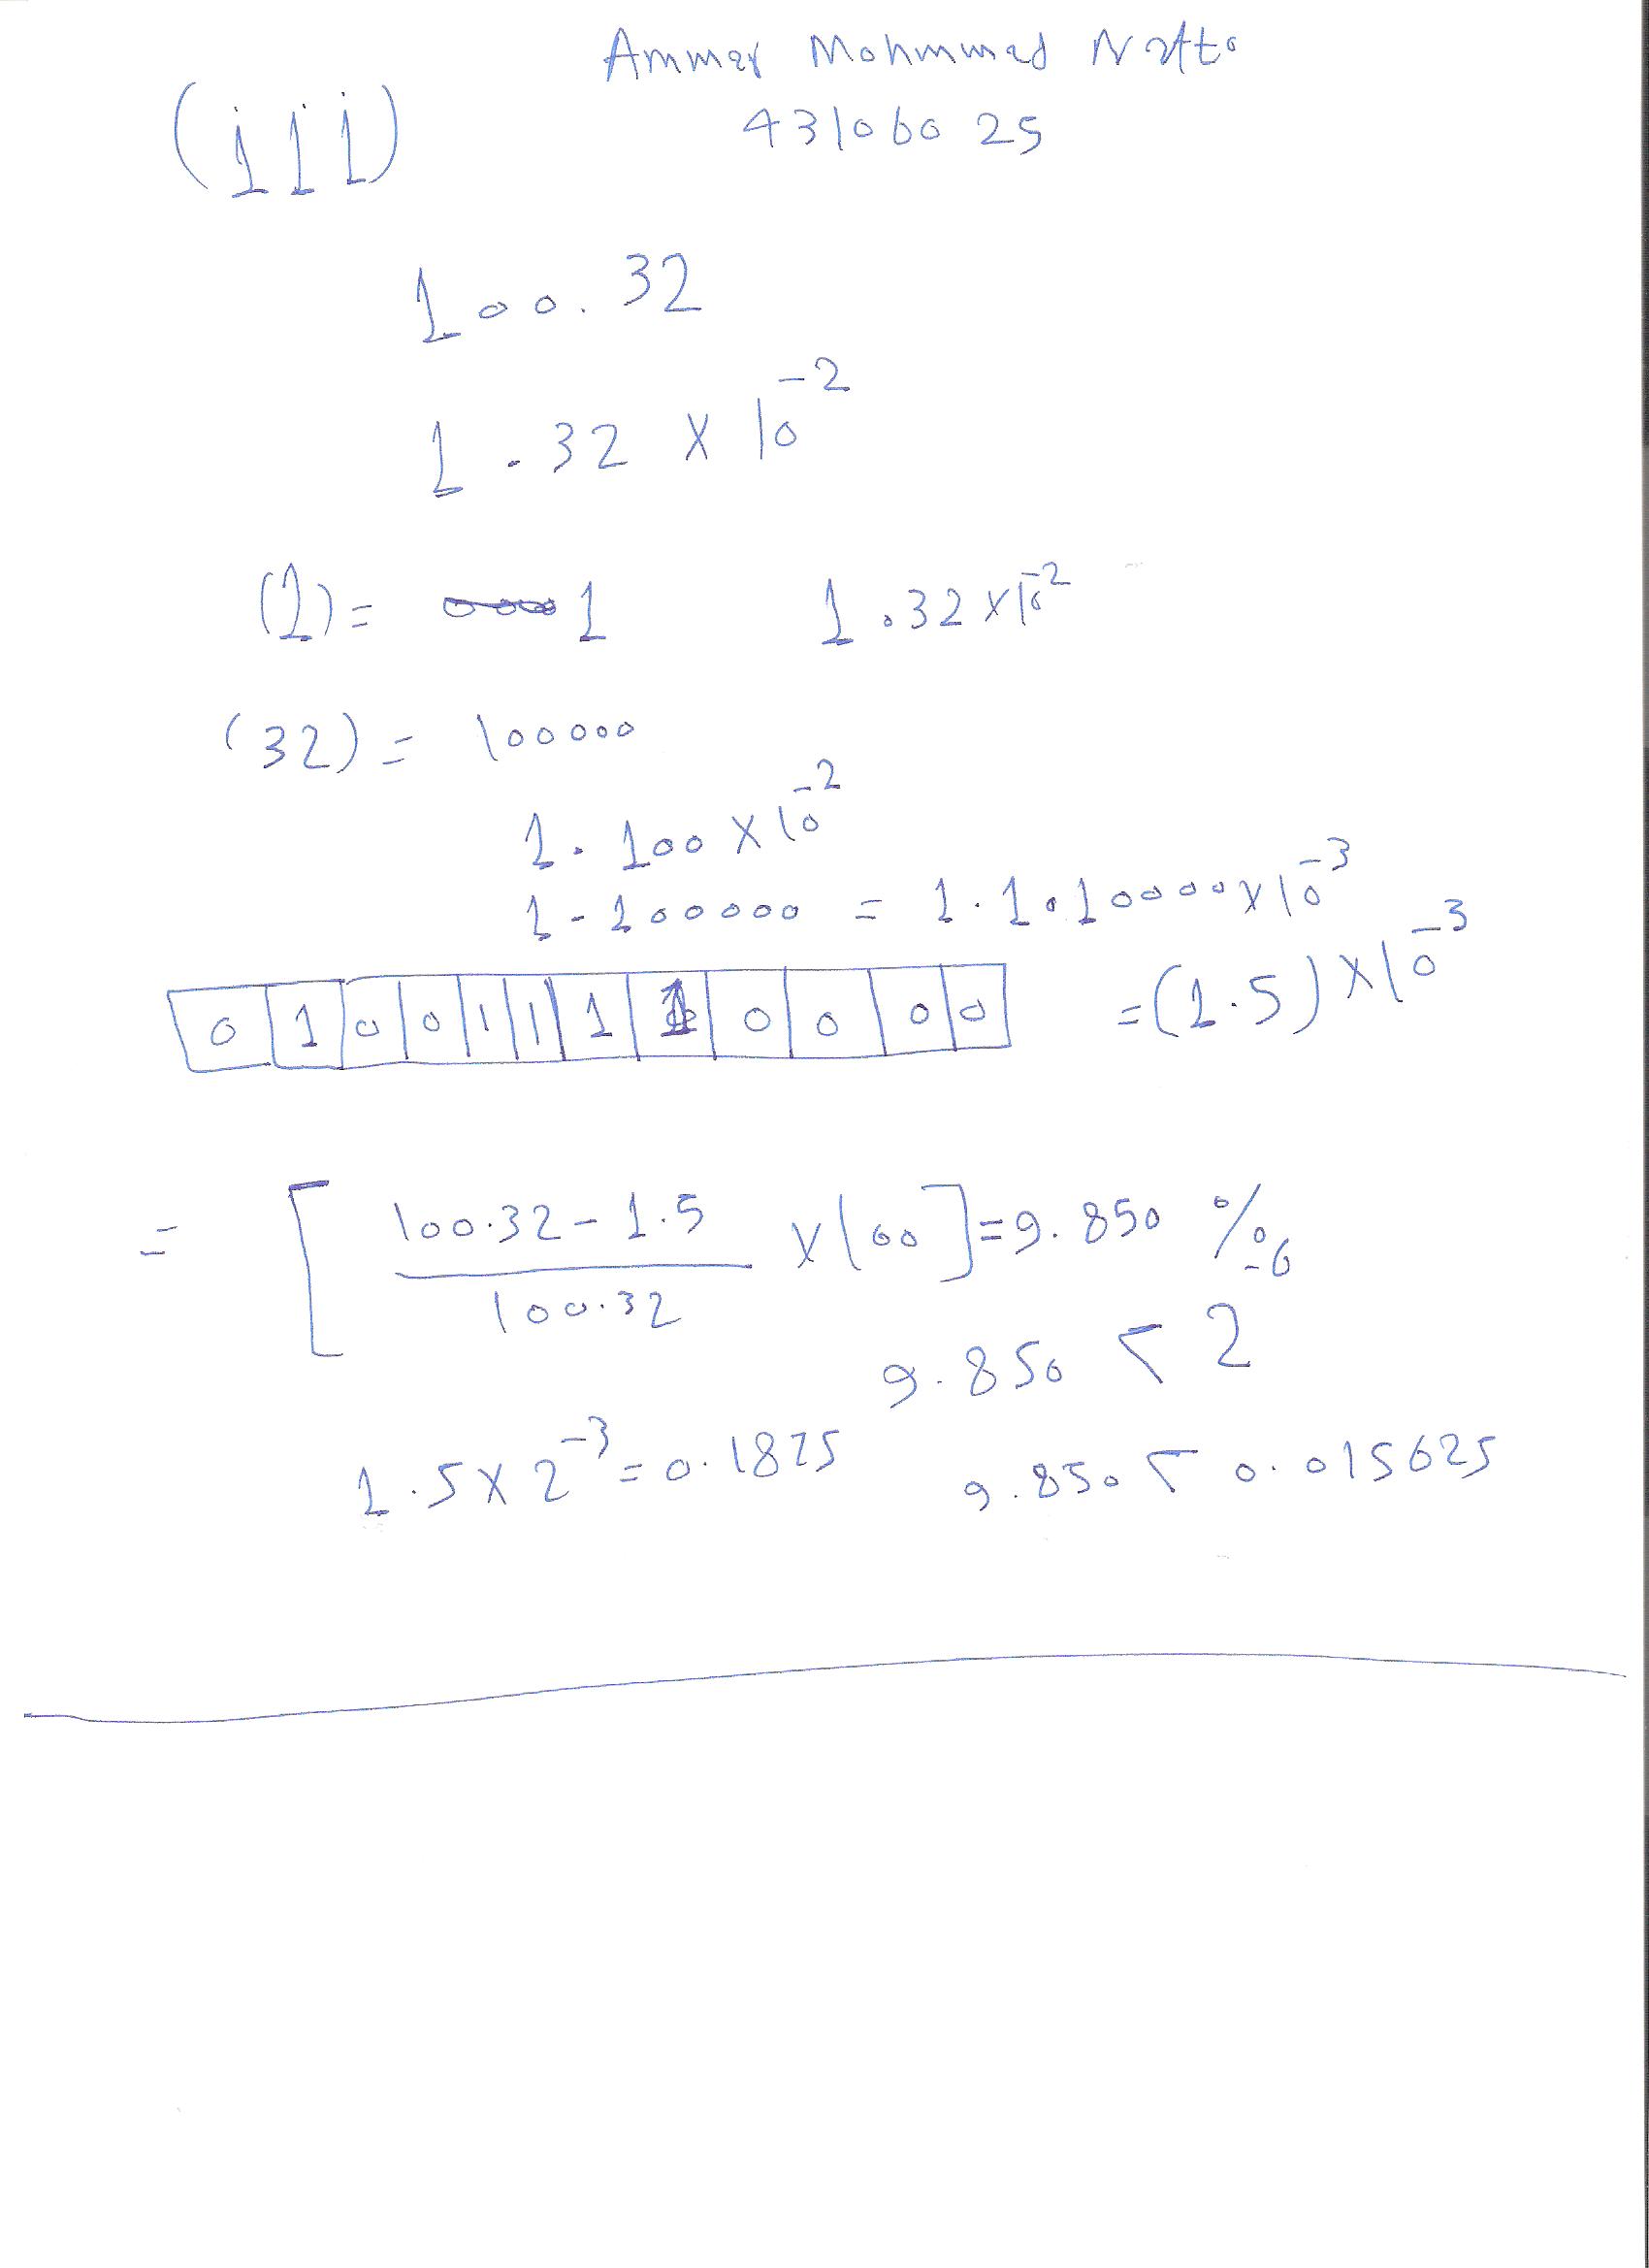 Ammar Mohmmad Natto
43106025
(iii)
100.32
1.32 x 10^-2
(1)= 1 1.32 x 10^-2
(32) = 100000
1.100 x 10^-2
1.100000 = 1.1.10000 x 10^-3
0 1 0 0 1 1 1 1 0 0 0 0 = (1.5) x 10^-3
= [ 100.32 - 1.5 / 100.32 x 100 ] = 9.850 %
9.850 < 2^-6
1.5 x 2^-3 = 0.1825 9.850 < 0.015625